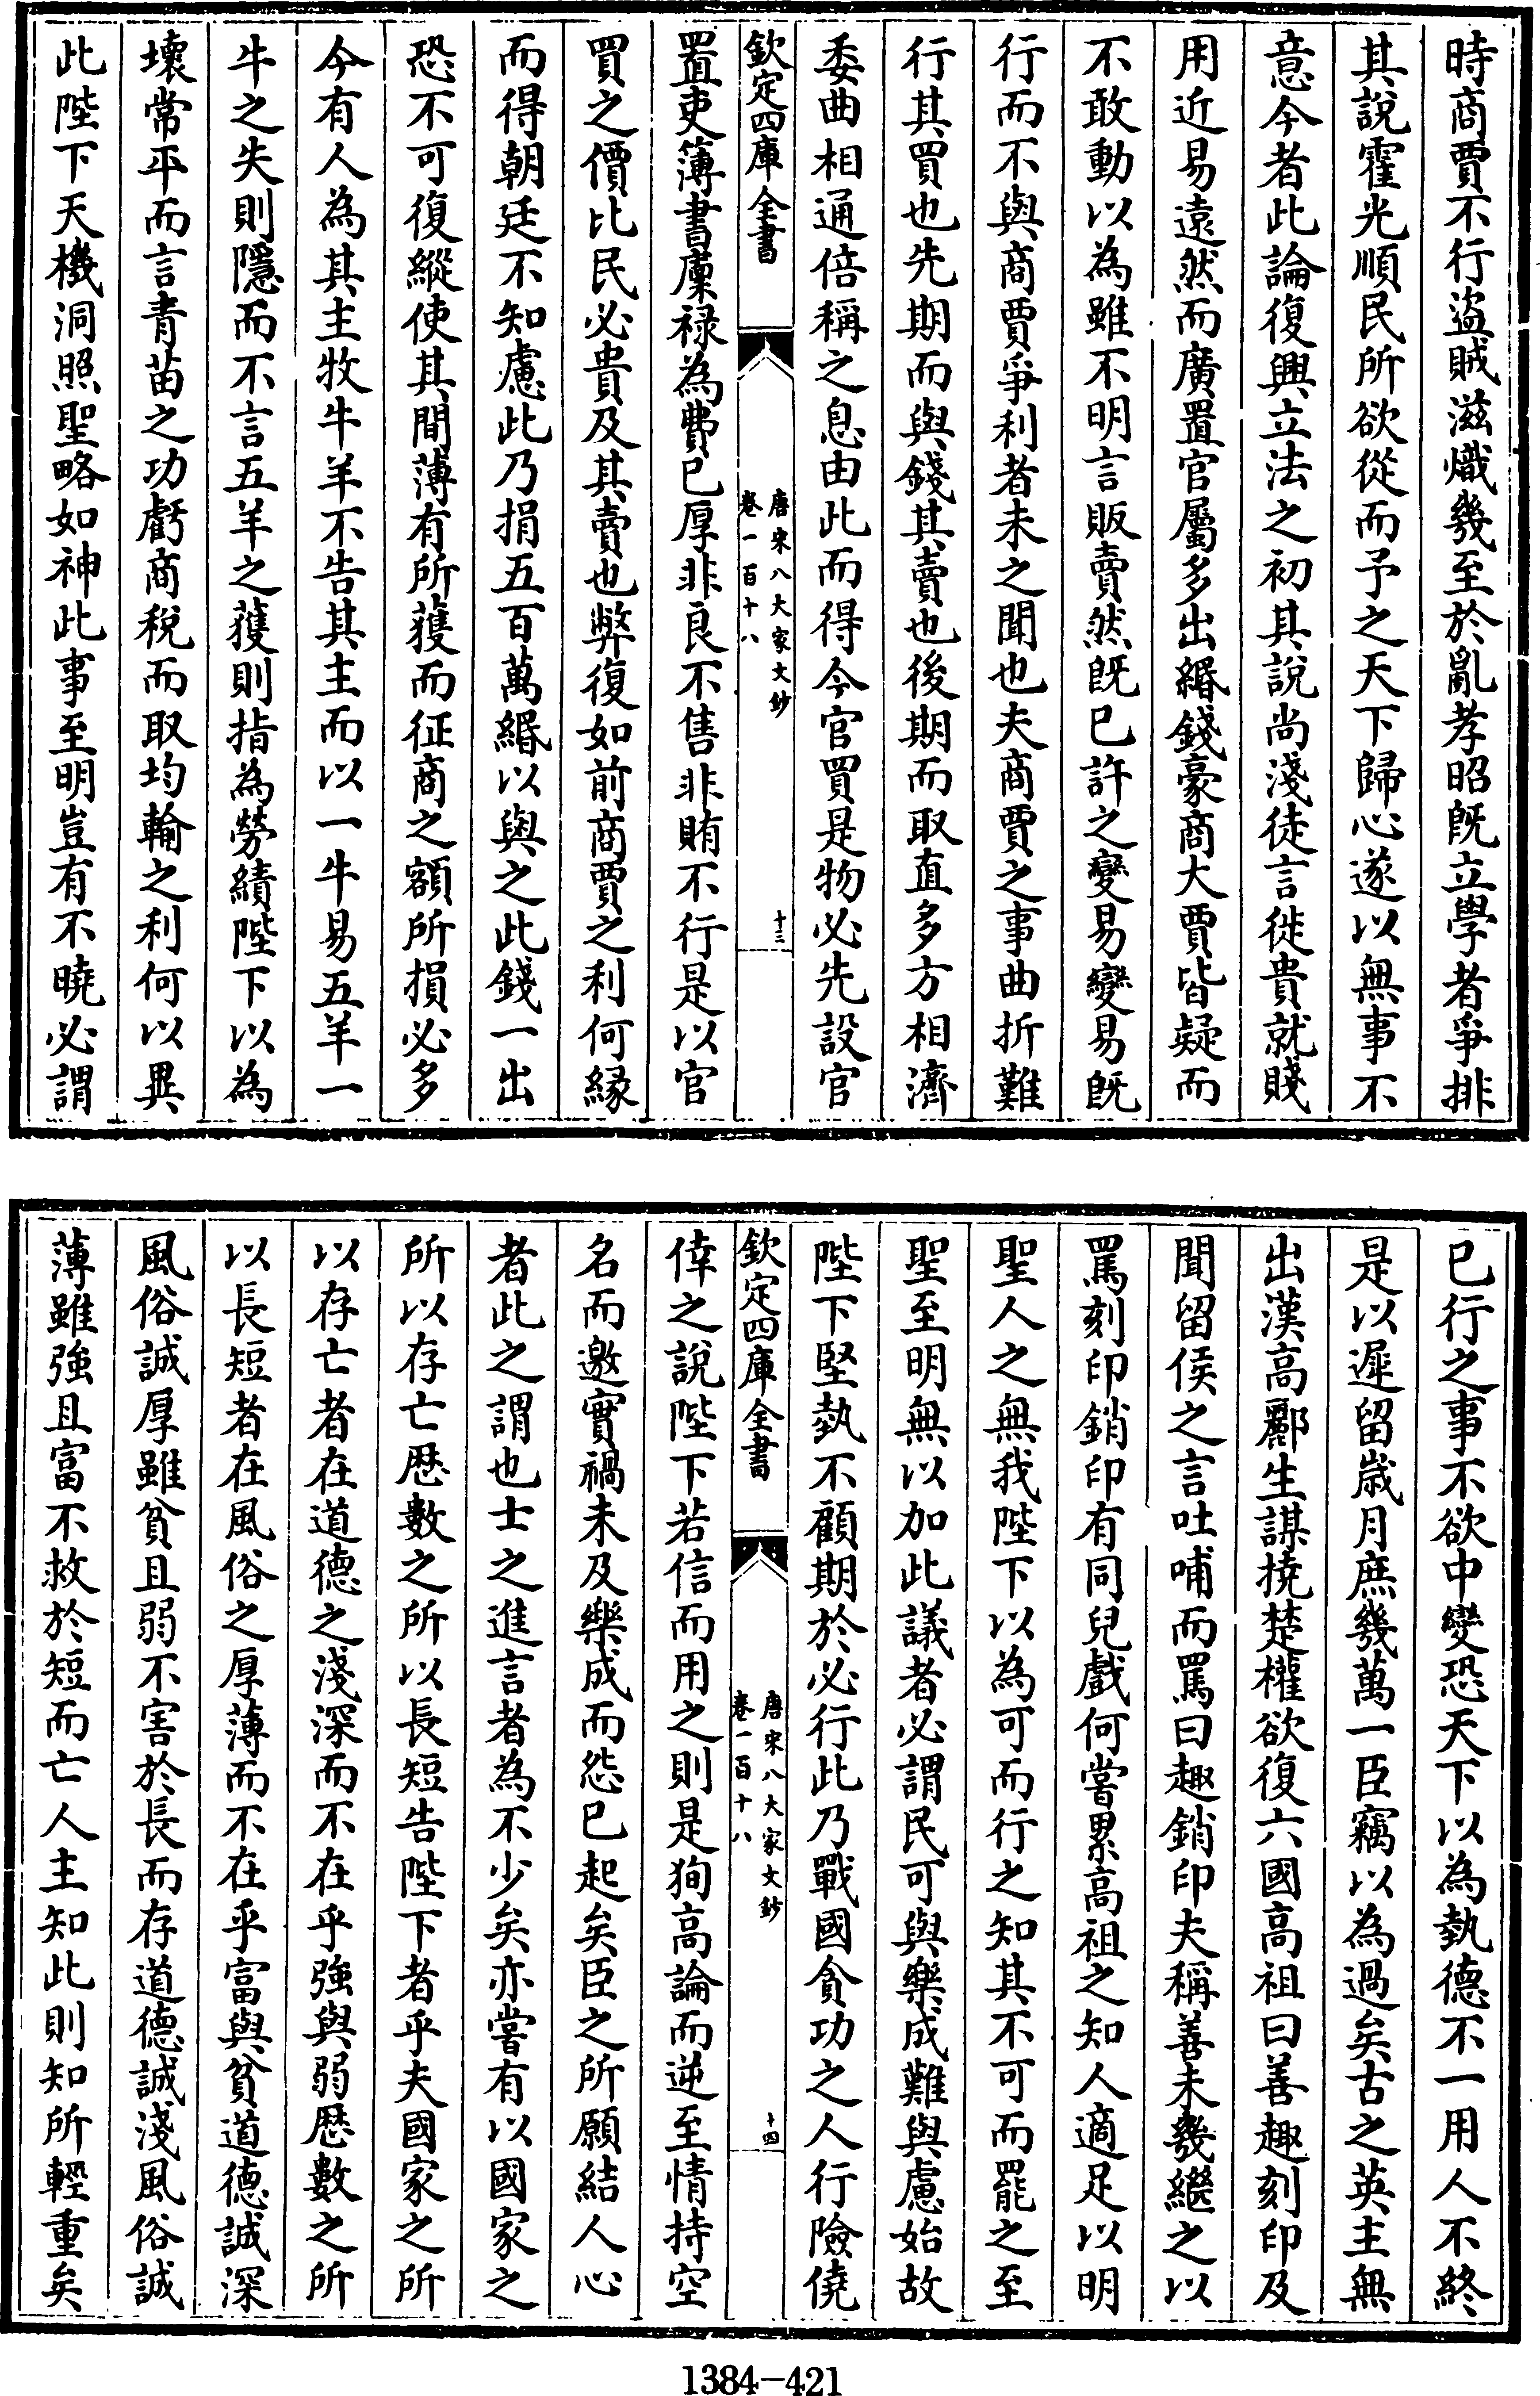 時商賈不行盜賊滋熾幾至於亂孝昭旣立學者爭排
其說霍光順民所欲從而予之天下歸心遂以無事不
意今者此論復興立法之初其說尚淺徒言徙貴就賤
用近易遠然而廣置官屬多出緡錢豪商大賈皆疑而
不敢動以為雖不明言販賣然旣已許之變易變易旣
行而不與商賈爭利者未之聞也夫商賈之事曲折難
行其買也先期而與錢其賣也後期而取直多方相濟
委曲相通倍稱之息由此而得今官買是物必先設官
欽定四庫全書
唐宋八大家文鈔
卷一百十八
十三
置吏簿書廩祿為費已厚非良不售非賄不行是以官
買之價比民必貴及其賣也弊復如前商賈之利何緣
而得朝廷不知慮此乃捐五百萬緡以與之此錢一出
恐不可復縱使其間薄有所獲而征商之額所損必多
今有人為其主牧牛羊不告其主而以一牛易五羊一
牛之失則隱而不言五羊之獲則指為勞績陛下以為
壞常平而言青苗之功虧商稅而取均輸之利何以異
此陛下天機洞照聖略如神此事至明豈有不曉必謂
已行之事不欲中變恐天下以為執德不一用人不終
是以遲留歲月庶幾萬一臣竊以為過矣古之英主無
出漢高酈生謀撓楚權欲復六國高祖曰善趣刻印及
聞留侯之言吐哺而罵曰趣銷印夫稱善未幾繼之以
罵刻印銷印有同兒戲何嘗累高祖之知人適足以明
聖人之無我陛下以為可而行之知其不可而罷之至
聖至明無以加此議者必謂民可與樂成難與慮始故
陛下堅執不顧期於必行此乃戰國貪功之人行險僥
欽定四庫全書
唐宋八大家文鈔
卷一百十八
十四
倖之說陛下若信而用之則是狥高論而逆至情持空
名而邀實禍未及樂成而怨已起矣臣之所願結人心
者此之謂也士之進言者為不少矣亦嘗有以國家之
所以存亡歷數之所以長短告陛下者乎夫國家之所
以存亡者在道德之淺深而不在乎強與弱歷數之所
以長短者在風俗之厚薄而不在乎富與貧道德誠深
風俗誠厚雖貧且弱不害於長而存道德誠淺風俗誠
薄雖強且富不救於短而亡人主知此則知所輕重矣
1384-421